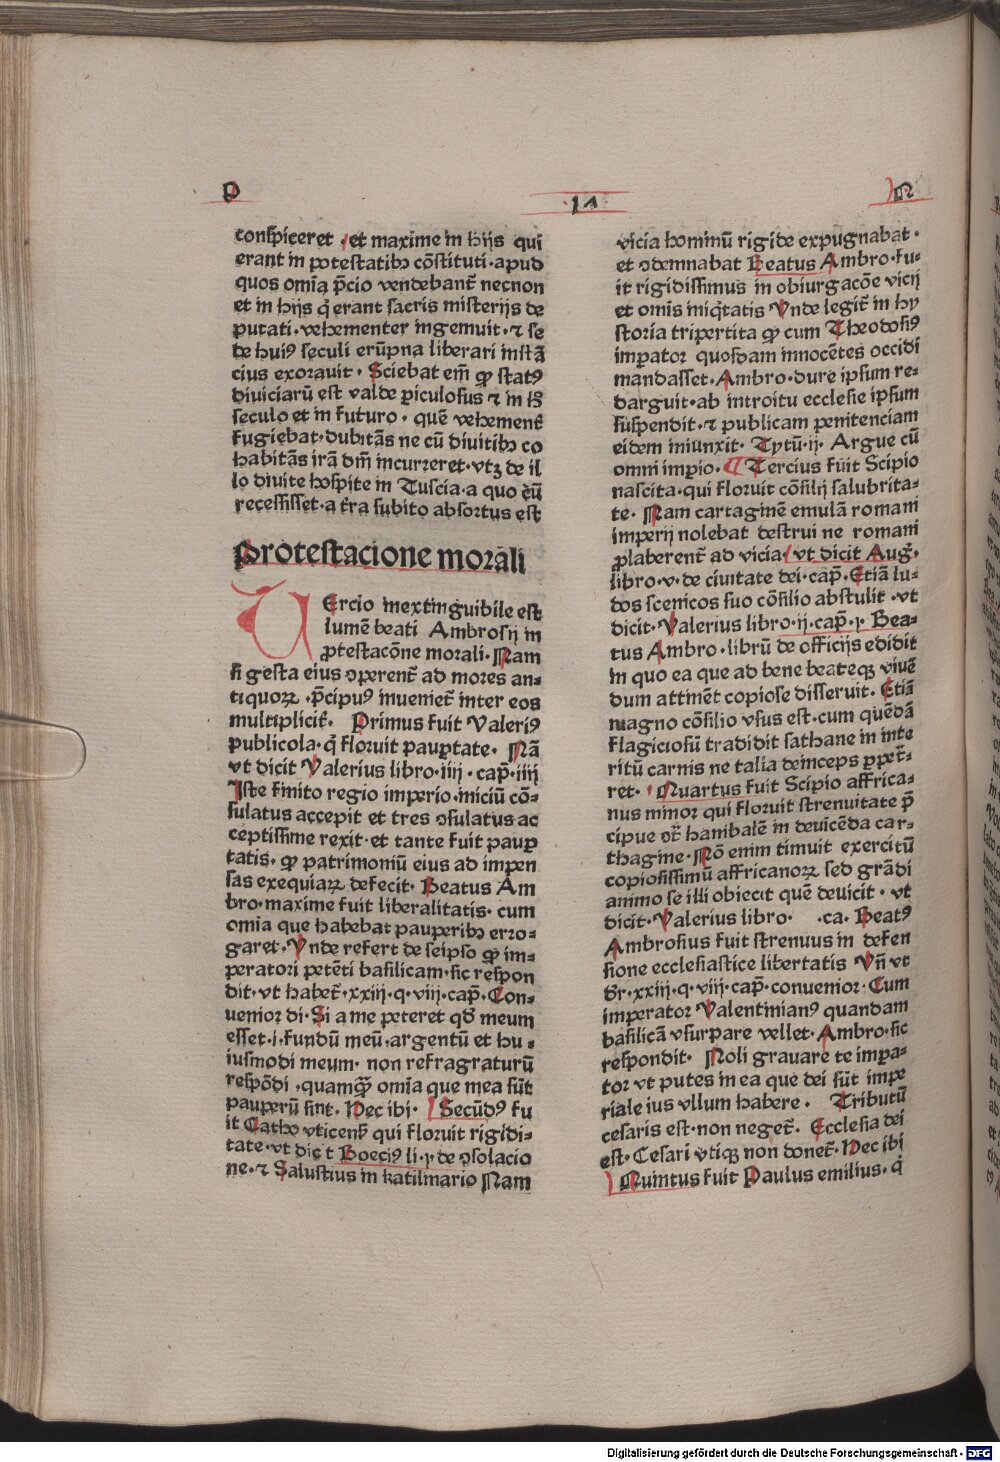 P
·14·
N
conspiceret ·et maxime in hijs qui
erant in potestatibꝫ cōstituti·apud
quos omīa p̄cio vendebant᷑ necnon
et in hijs q̇ erant sacris misterijs de
putati·vehementer ingemuit·⁊ se
de huiꝰ seculi erūpna liberari instā
cius exorauit· Sciebat em̄ ꝙ statꝰ
diuiciarū est valde ꝑiculosus ⁊ in h̄
seculo et in futuro· quē vehement᷑
fugiebat·dubitās ne cū diuitibꝫ co
habitās irā dn̄i incurreret·vtꝫ de il
lo diuite hospite in Tuscia·a quo cū
recessisset·a t̄ra subito absortus est
Protestacione morali
Ercio inextinguibile est
lumē beati Ambrosij in
ꝓtestacōne morali·Nam
si gesta eius operent᷑ ad mores an-
tiquoꝝ·p̄cipuꝰ inueniet᷑ inter eos
multiplicit᷑· Primus fuit Valeriꝰ
publicola·q̇ floruit pauꝑtate· Nā
vt dicit Valerius libro·iiij·cap̄·iiij
Iste finito regio imperio·iniciū cō-
sulatus accepit et tres ↄsulatus ac
ceptissime rexit·et tante fuit pauꝑ
tatis·ꝙ patrimoniū eius ad impen
sas exequiaꝝ defecit·Beatus Am
bro·maxime fuit liberalitatis·cum
omīa que habebat pauperibꝫ erro-
garet·Vnde refert de seipso ꝙ im-
peratori petēti basilicam·sic respon
dit·vt habet᷑·xxiij·q·viij·cap̄·Con-
uenior di·Si a me peteret qd̄ meum
esset·i·fundū meū·argentū et hu-
iusmodi meum·non refragraturū
respōdi·quamꝙ̄ omīa que mea sūt
pauperū sint·Hec ibi· Secūdꝰ fu
it Catho vticens̄ qui floruit rigidi-
tate·vt dicit Boeciꝰ li·j·de ↄsolacio
ne·⁊ Salustius in katilinario Nam
vicia hominū rigide expugnabat·
et ↄdemnabat Beatus Ambro·fu-
it rigidissimus in obiurgacōe vicij
et omis iniq̇tatis Vnde legit᷑ in hy
storia tripertita ꝙ cum Theodosiꝰ
imꝑator quosdam innocētes occidi
mandasset·Ambro·dure ipsum re-
darguit·ab introitu ecclesie ipsum
suspendit·⁊ publicam penitenciam
eidem iniunxit· Tytū·ij· Argue cū
omni imꝑio· Tercius fuit Scipio
nascita·qui floruit cōsilij salubrita-
te·Nam cartaginē emulā romani
imperij nolebat destrui ne romani
ꝓlaberent᷑ ad vicia·vt dicit Aug̅·
libro·v·de ciuitate dei·cap̄·Etiā lu-
dos scenicos suo cōsilio abstulit·vt
dicit·Valerius libro·ij·cap̄·j·Bea-
tus Ambro·librū de officijs edidit
in quo ea que ad bene beateqꝫ viuē
dum attinēt copiose disseruit·Etiā
magno cōsilio vsus est·cum quēdā
flagiciosū tradidit sathane in inte
ritū carnis ne talia deinceps ꝑpet᷑-
ret· Quartus fuit Scipio affrica-
nus minor qui floruit strenuitate p̄
cipue ↄt̄ hanibalē in deuicēda car-
thagine·Nō enim timuit exercitū
copiosissimū affricanoꝝ sed grādi
animo se illi obiecit quē deuicit·vt
dicit·Valerius libro· ·ca·Beatꝰ
Ambrosius fuit strenuus in defen
sione ecclesiastice libertatis Vn̄ vt
dr̄·xxiij·q·viij·cap̄·conuenior·Cum
imperator Valentinianꝰ quandam
basilicā vsurpare vellet·Ambro·sic
respondit· Noli grauare te imꝑa-
tor vt putes in ea que dei sūt impe
riale ius vllum habere· Tributū
cesaris est·non neget᷑· Ecclesia dei
est·Cesari vtiqꝫ non donet᷑·Hec ibi
Quintus fuit Paulus emilius·q̇
Digitalisierung gefördert durch die Deutsche Forschungsgemeinschaft - DFG